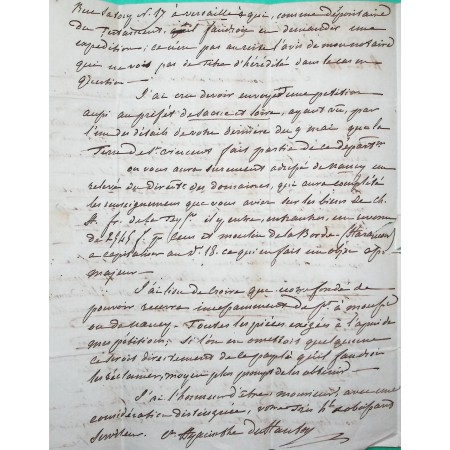 Rue Satory N°. 17 à Versailles que, comme dépositaire
du Testament, il faudroit en demander une
expédition; ce n'est pas au reste l'avis de mon notaire
qui ne voit pas de titre d'hérédité dans le cas en
question.
J'ai cru devoir envoyer une petition
aussi au préfet de Saone et Loire, ayant vu, par
l'un des détails de votre dernière du 9 mai que la
Terre de St. Vincent fait partie de ce départ.
on vous aura surement adressé de Nancy un
relevé du direct. des domaines, qui aura complété
les renseignemens que vous aviez sur les biens de Ch.
St. fr. de il y entre, entr'autres, un revenu
de 2545 f. Cens et moulin de la Borde
a capitaliser au d. 18. ce qui en fait un objet
majeur.
J'ai lieu de croire que votre fondé de
pouvoir recevra incessamment de à
ou de Nancy. Toutes les pièces exigées à l'appui de
mes pétitions. Si l'on en omettoit quelqu'une
ce seroit directement de ce pays là qu'il faudroit
les réclamer, moyen plus prompt de les obtenir.
J'ai l'honneur d'être monsieur, avec une
considération distinguée, votre très h. et obéissant
Serviteur. Hyacinthe du Hautoy